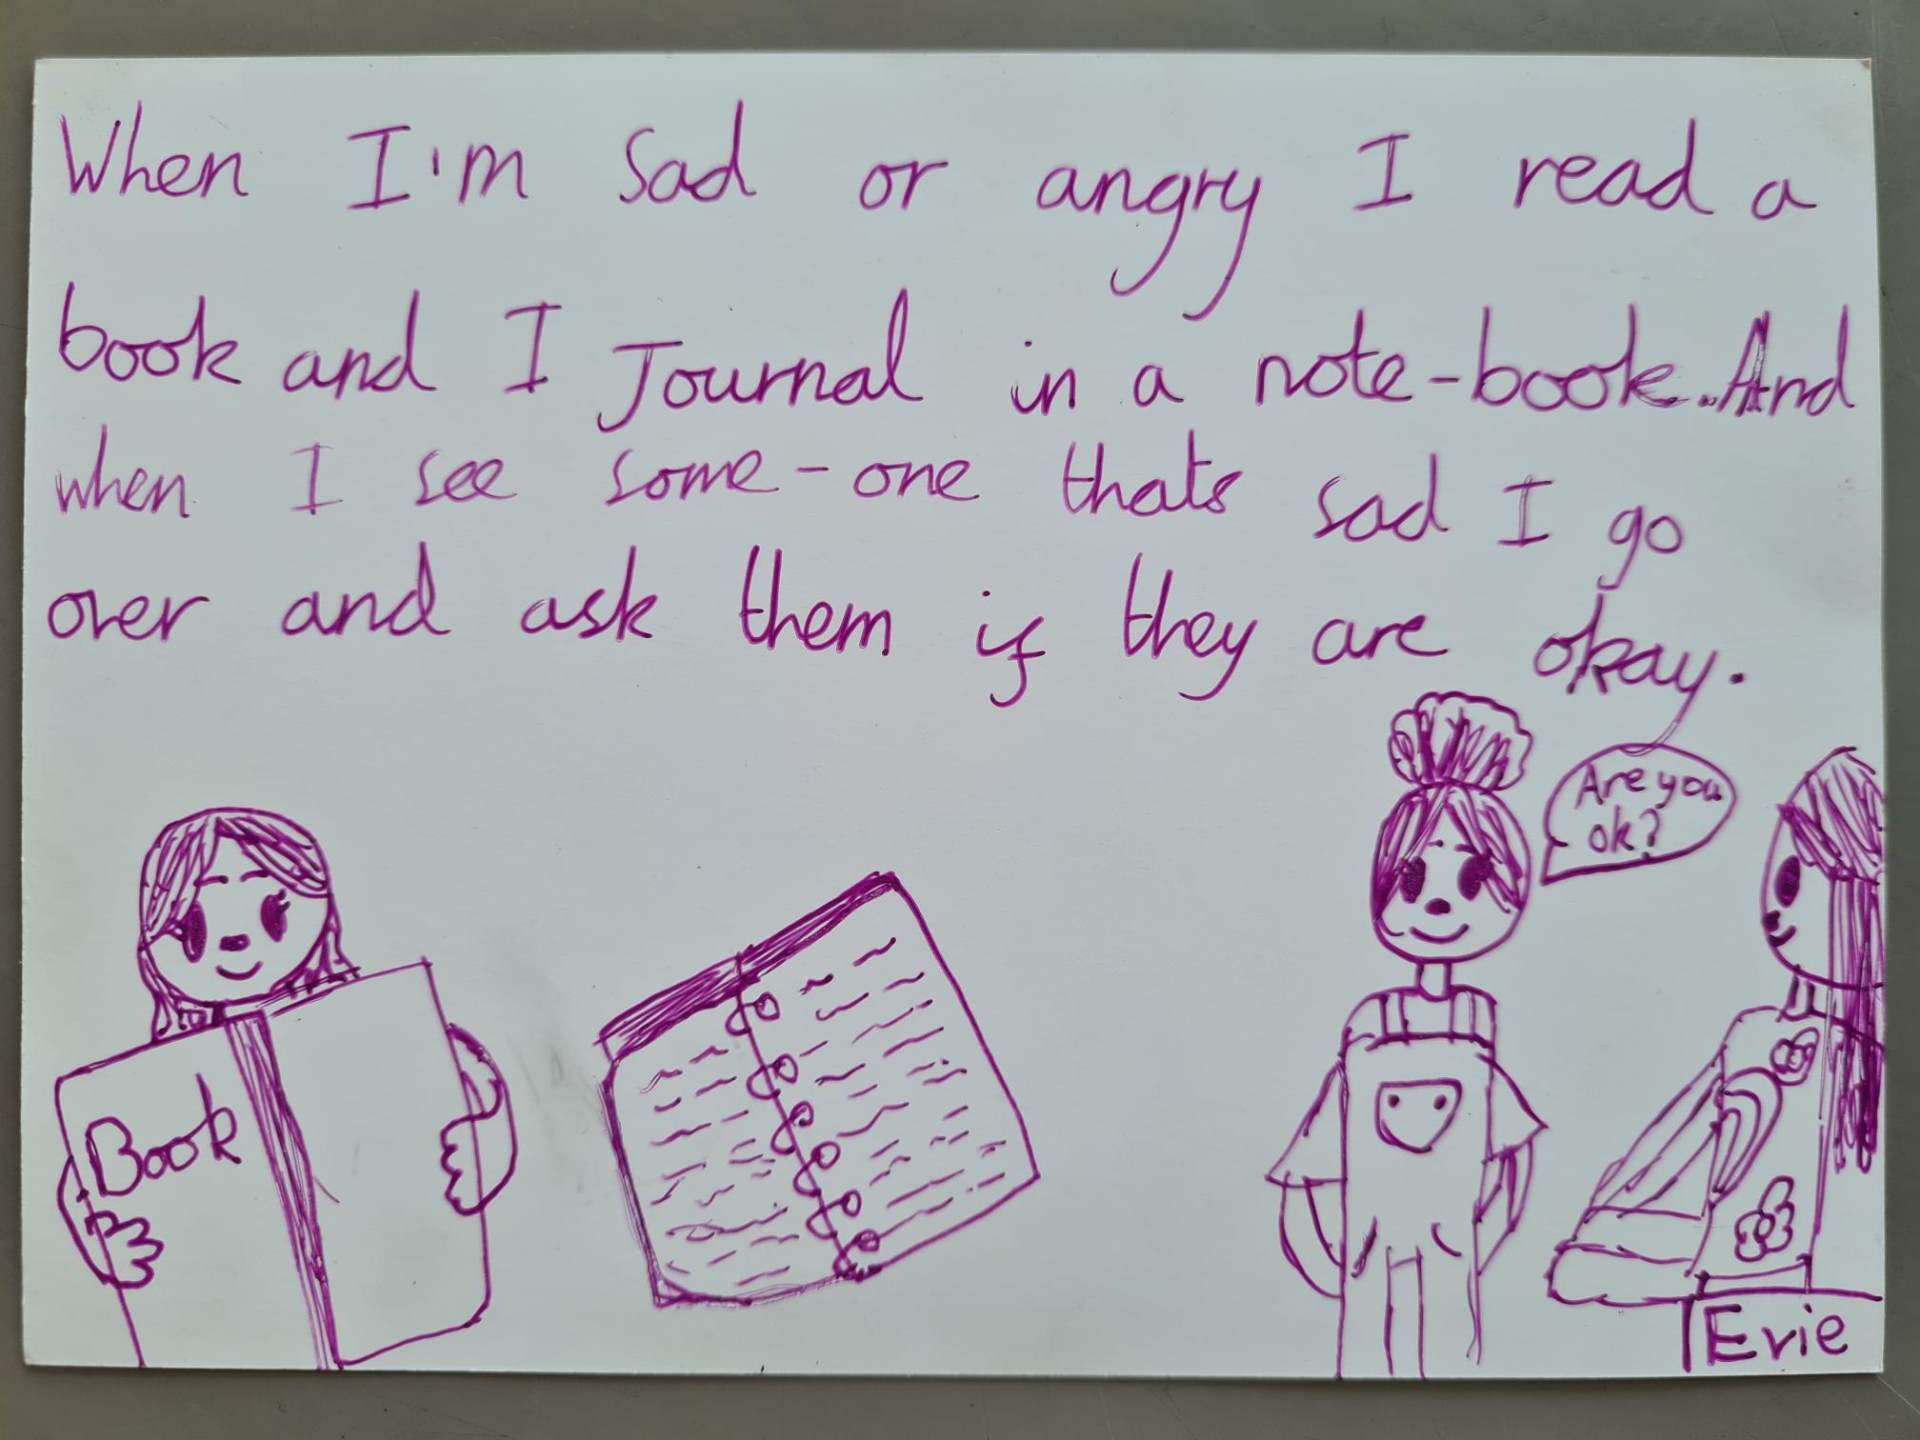 When I'm sad or angry I read a
book and I Journal in a note-book. And
when I see some-one thats sad I go
over and ask them if they are okay.
Are you
ok?
Book
Evie